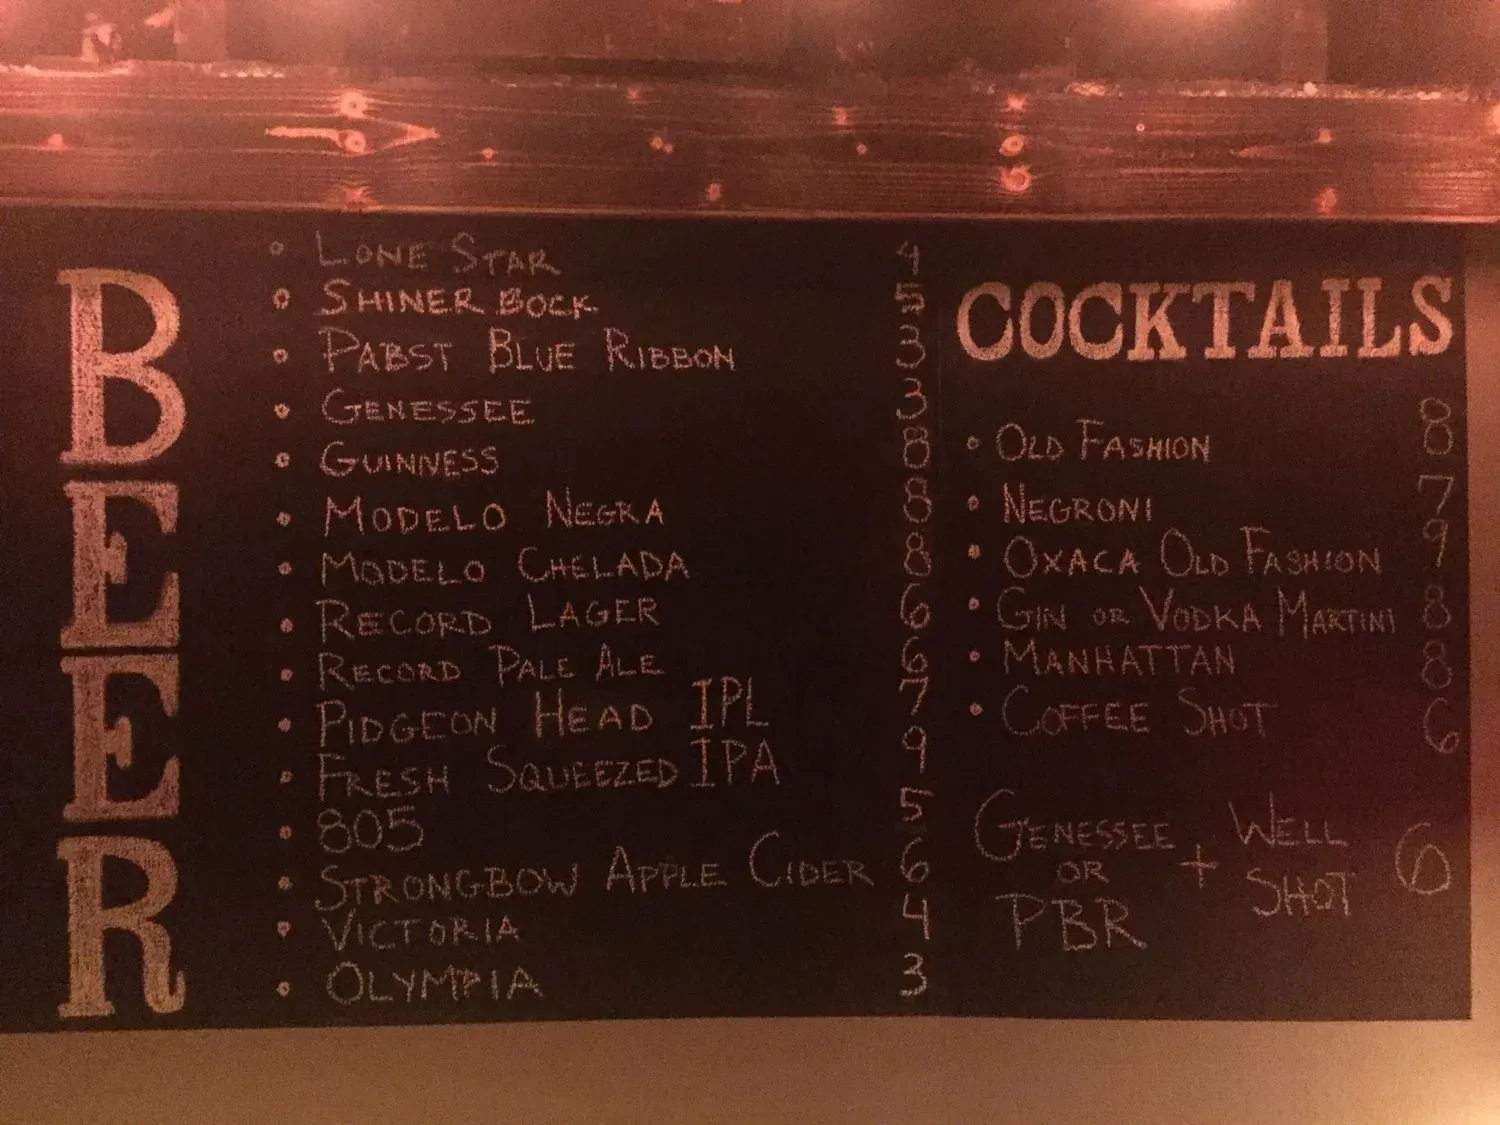 BEER
LONE STAR 4
SHINER BOCK 5
PABST BLUE RIBBON 3
GENESSEE 3
GUINNESS 8
MODELO NEGRA 8
MODELO CHELADA 8
RECORD LAGER 6
RECORD PALE ALE 6
PIDGEON HEAD IPL 7
FRESH SQUEEZED IPA 9
805 5
STRONGBOW APPLE CIDER 6
VICTORIA 4
OLYMPIA 3
COCKTAILS
OLD FASHION 8
NEGRONI 7
OXACA OLD FASHION 9
GIN OR VODKA MARTINI 8
MANHATTAN 8
COFFEE SHOT 6
GENESSEE OR PBR + WELL SHOT 6